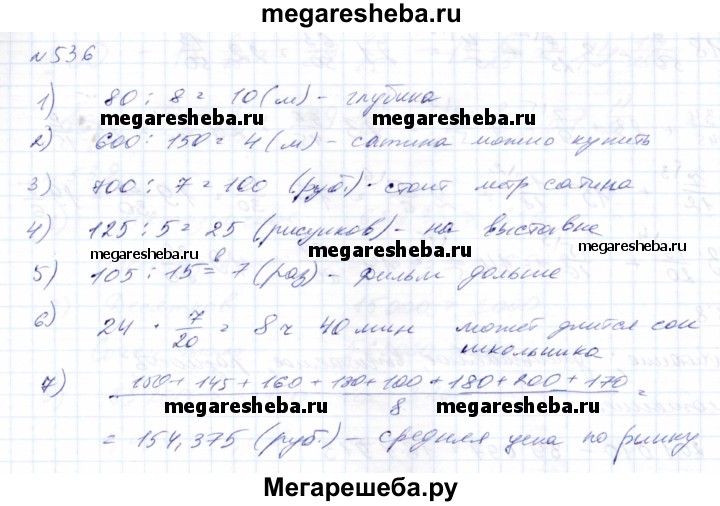 megaresheba.ru
№536
1) 80 : 8 = 10 (м) - глубина
megaresheba.ru megaresheba.ru
2) 600 : 150 = 4 (м) - сатина можно купить
3) 700 : 7 = 100 (руб.) - стоит метр сатина
4) 125 : 5 = 25 (рисунков) - на выставке
megaresheba.ru megaresheba.ru megaresheba.ru
5) 105 : 15 = в 7 (раз) - фильм дольше
6) 24 · 7/20 = 8 ч 40 мин может длится сон
школьника
7) 150 + 145 + 160 + 130 + 100 + 180 + 200 + 170 =
megaresheba.ru megaresheba.ru
8
= 154,375 (руб.) - средняя цена по рынку
Мегарешеба.ру